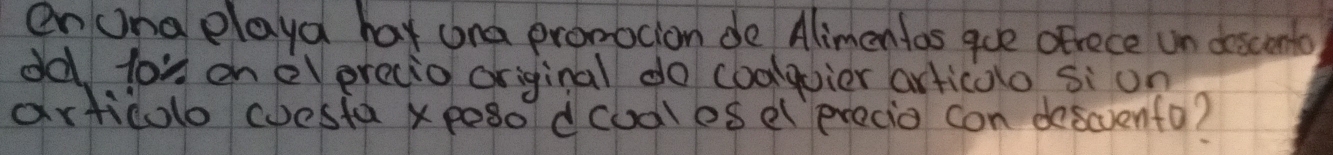 en una playa hay una promocion de Alimentos que ofrece un descuento
del 10% en el precio original do coalquier articolo si un
articolo cuesta x peso d cual es el precio con descuento?